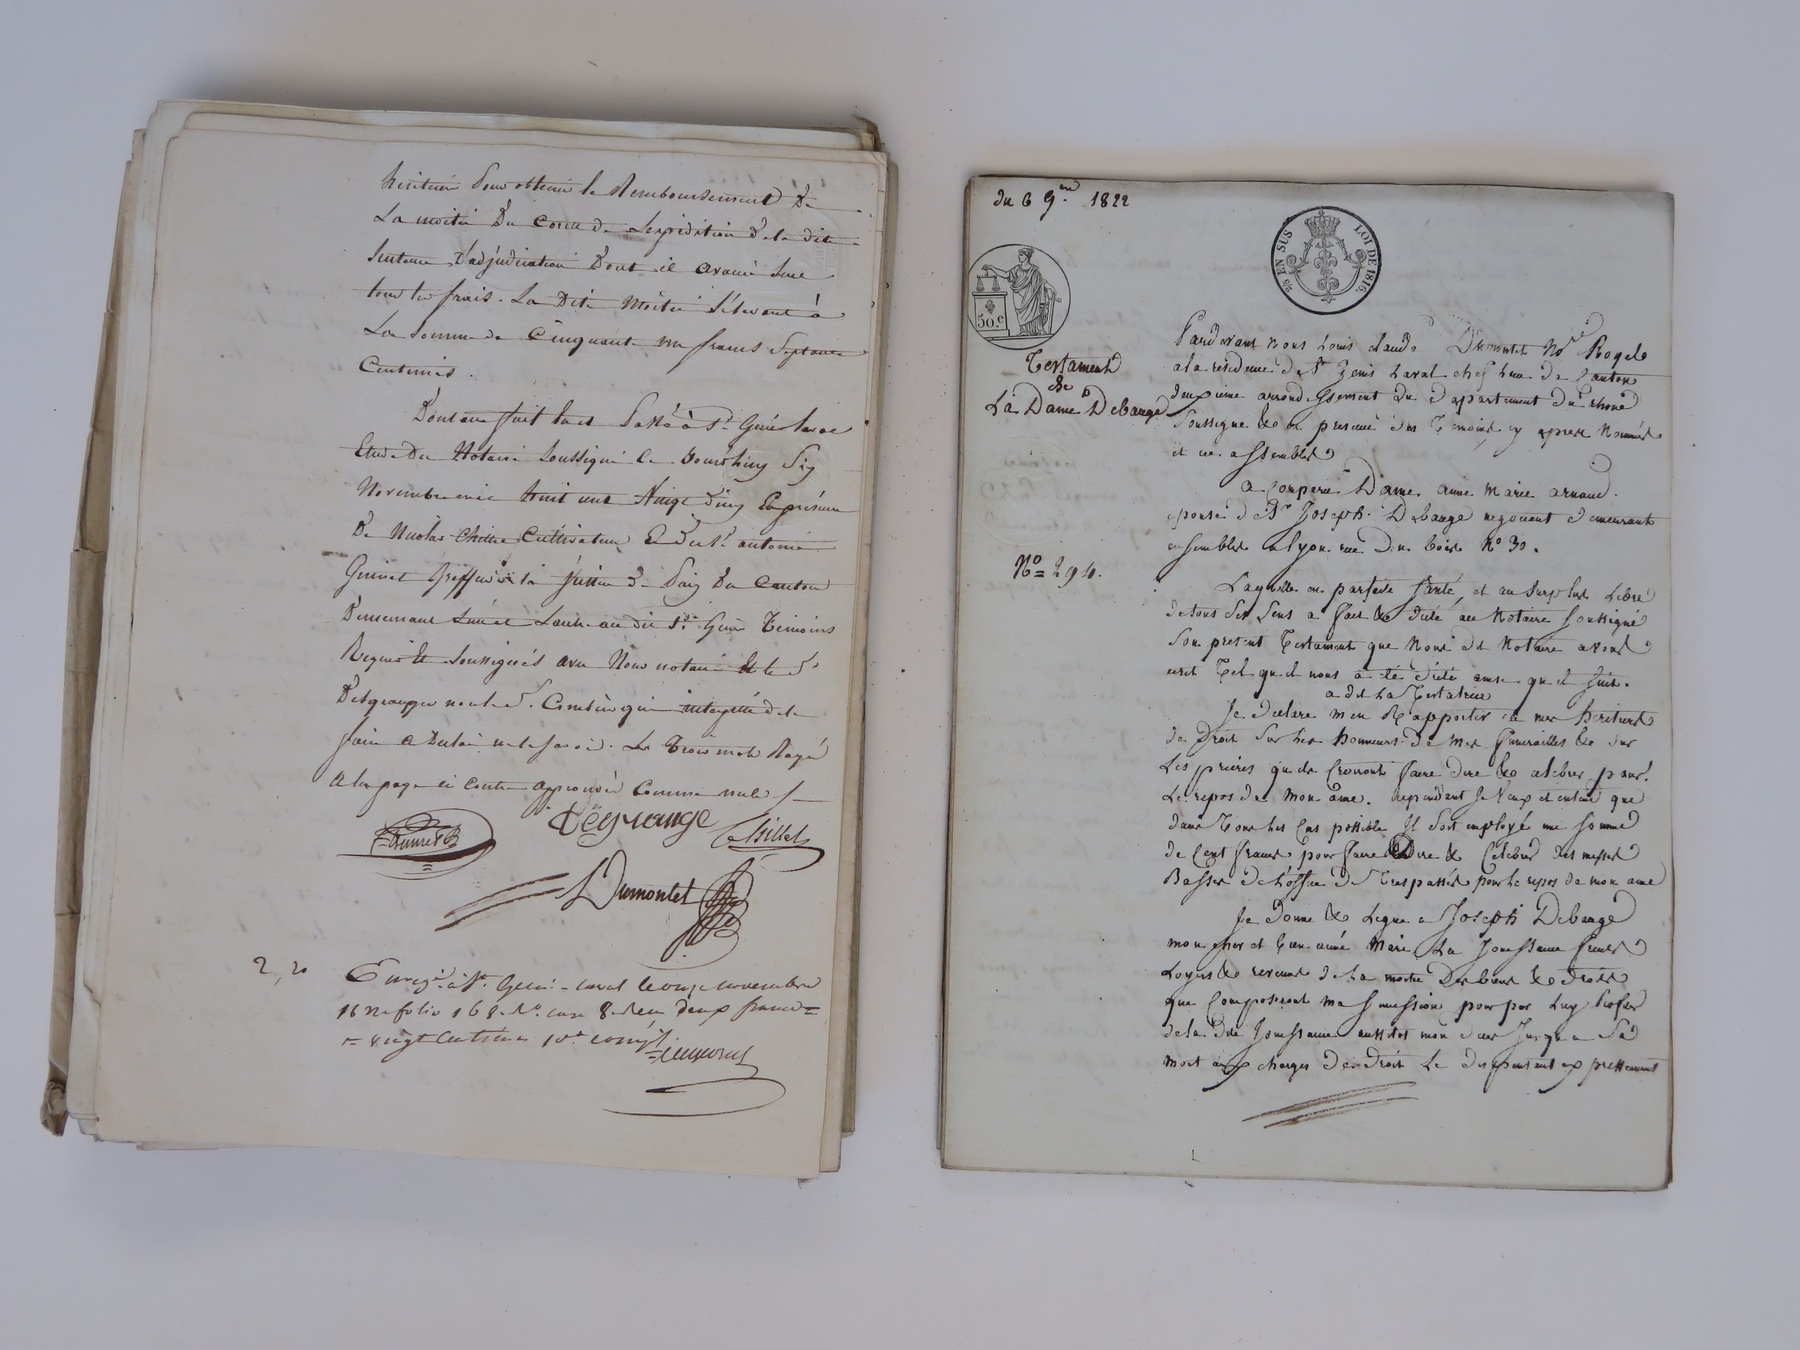 héritiers pour obtenir le Remboursement De
La moitié Du Cout de L'expédition De la dite
Sentence D'adjudication Dont il avance Seul
tous les frais. La Dite Moitié S'élevant à
La Somme de Cinquante un francs Septante
Centimes.
Dont acte fait lu et Passé à St. Genis Laval
Etude Du Notaire Soussigné Le
Novembre mil huit cent Vingt Deux En présence
De Nicolas Chillet Cultivateur Et De Sr. antoine
Greffier de la Justice de Paix Du Canton
Demeurant L'un et L'autre au dit St. Genis Témoins
Requis & Soussignés avec Nous notaire & le Sr
non le Sr. qui interpellé de le
faire a Déclaré ne le Savoir. Les Trois mots Rayés
A la page ci contre approuvés Comme nuls
Dégrange
Chillet
Dumontet
2, 20
Enregé. à St. Genis-Laval le onze novembre
1822 folio 168 Vo. case 8 Reçu deux francs
vingt Centimes 10e compris
du 6 9.bre 1822
25 EN SUS
LOI DE 1816.
50.c
Testament
de
La Dame Debauge
No = 294.
Pardevant nous Louis claude Dumontet Nre Royal
a la residence de St Genis Laval chef Lieu de Canton
deuxieme arrondissement du departement du rhone
Soussigné & en presence des Temoins cy apres Nommés
et
a Comparu Dame anne marie arnaud
epouse de Sr Joseph Debauge negociant demeurant
ensemble a Lyon rue Du bois No 30.
Laquelle en parfaite Santé, et au Surplus Libre
de tous Ses Sens a fait & dicté au Notaire Soussigné
Son present Testament que Nous dit Notaire avons
ecrit Tel qu'il nous a été dicté ainsi qu'il Suit.
a dit La Testatrice
Je declare m'en Rapporter a mes heritiers
de Droit Sur Les honneurs De mes funerailles & Sur
Les prieres qu'ils Croiront faire Dire & celebrer pour
Le repos de mon ame. cependant Je Veux et entend que
dans Tous Les Cas possible Il Soit employé une Somme
de Cent francs pour faire Dire & Celebrer des messes
Basses de L'office de Trespassés pour le repos de mon ame
Je Donne & Legue a Joseph Debauge
mon cher et bien aimé Mari, La Jouissance fruits
Loyers & revenus de La moitié Des biens & droits
que Composeront ma Succession pour par Luy Profiter
de la Dite Jouissance aussitot mon deces Jusqu'a Sa
mort aux charges de droit Le dispensant expressement